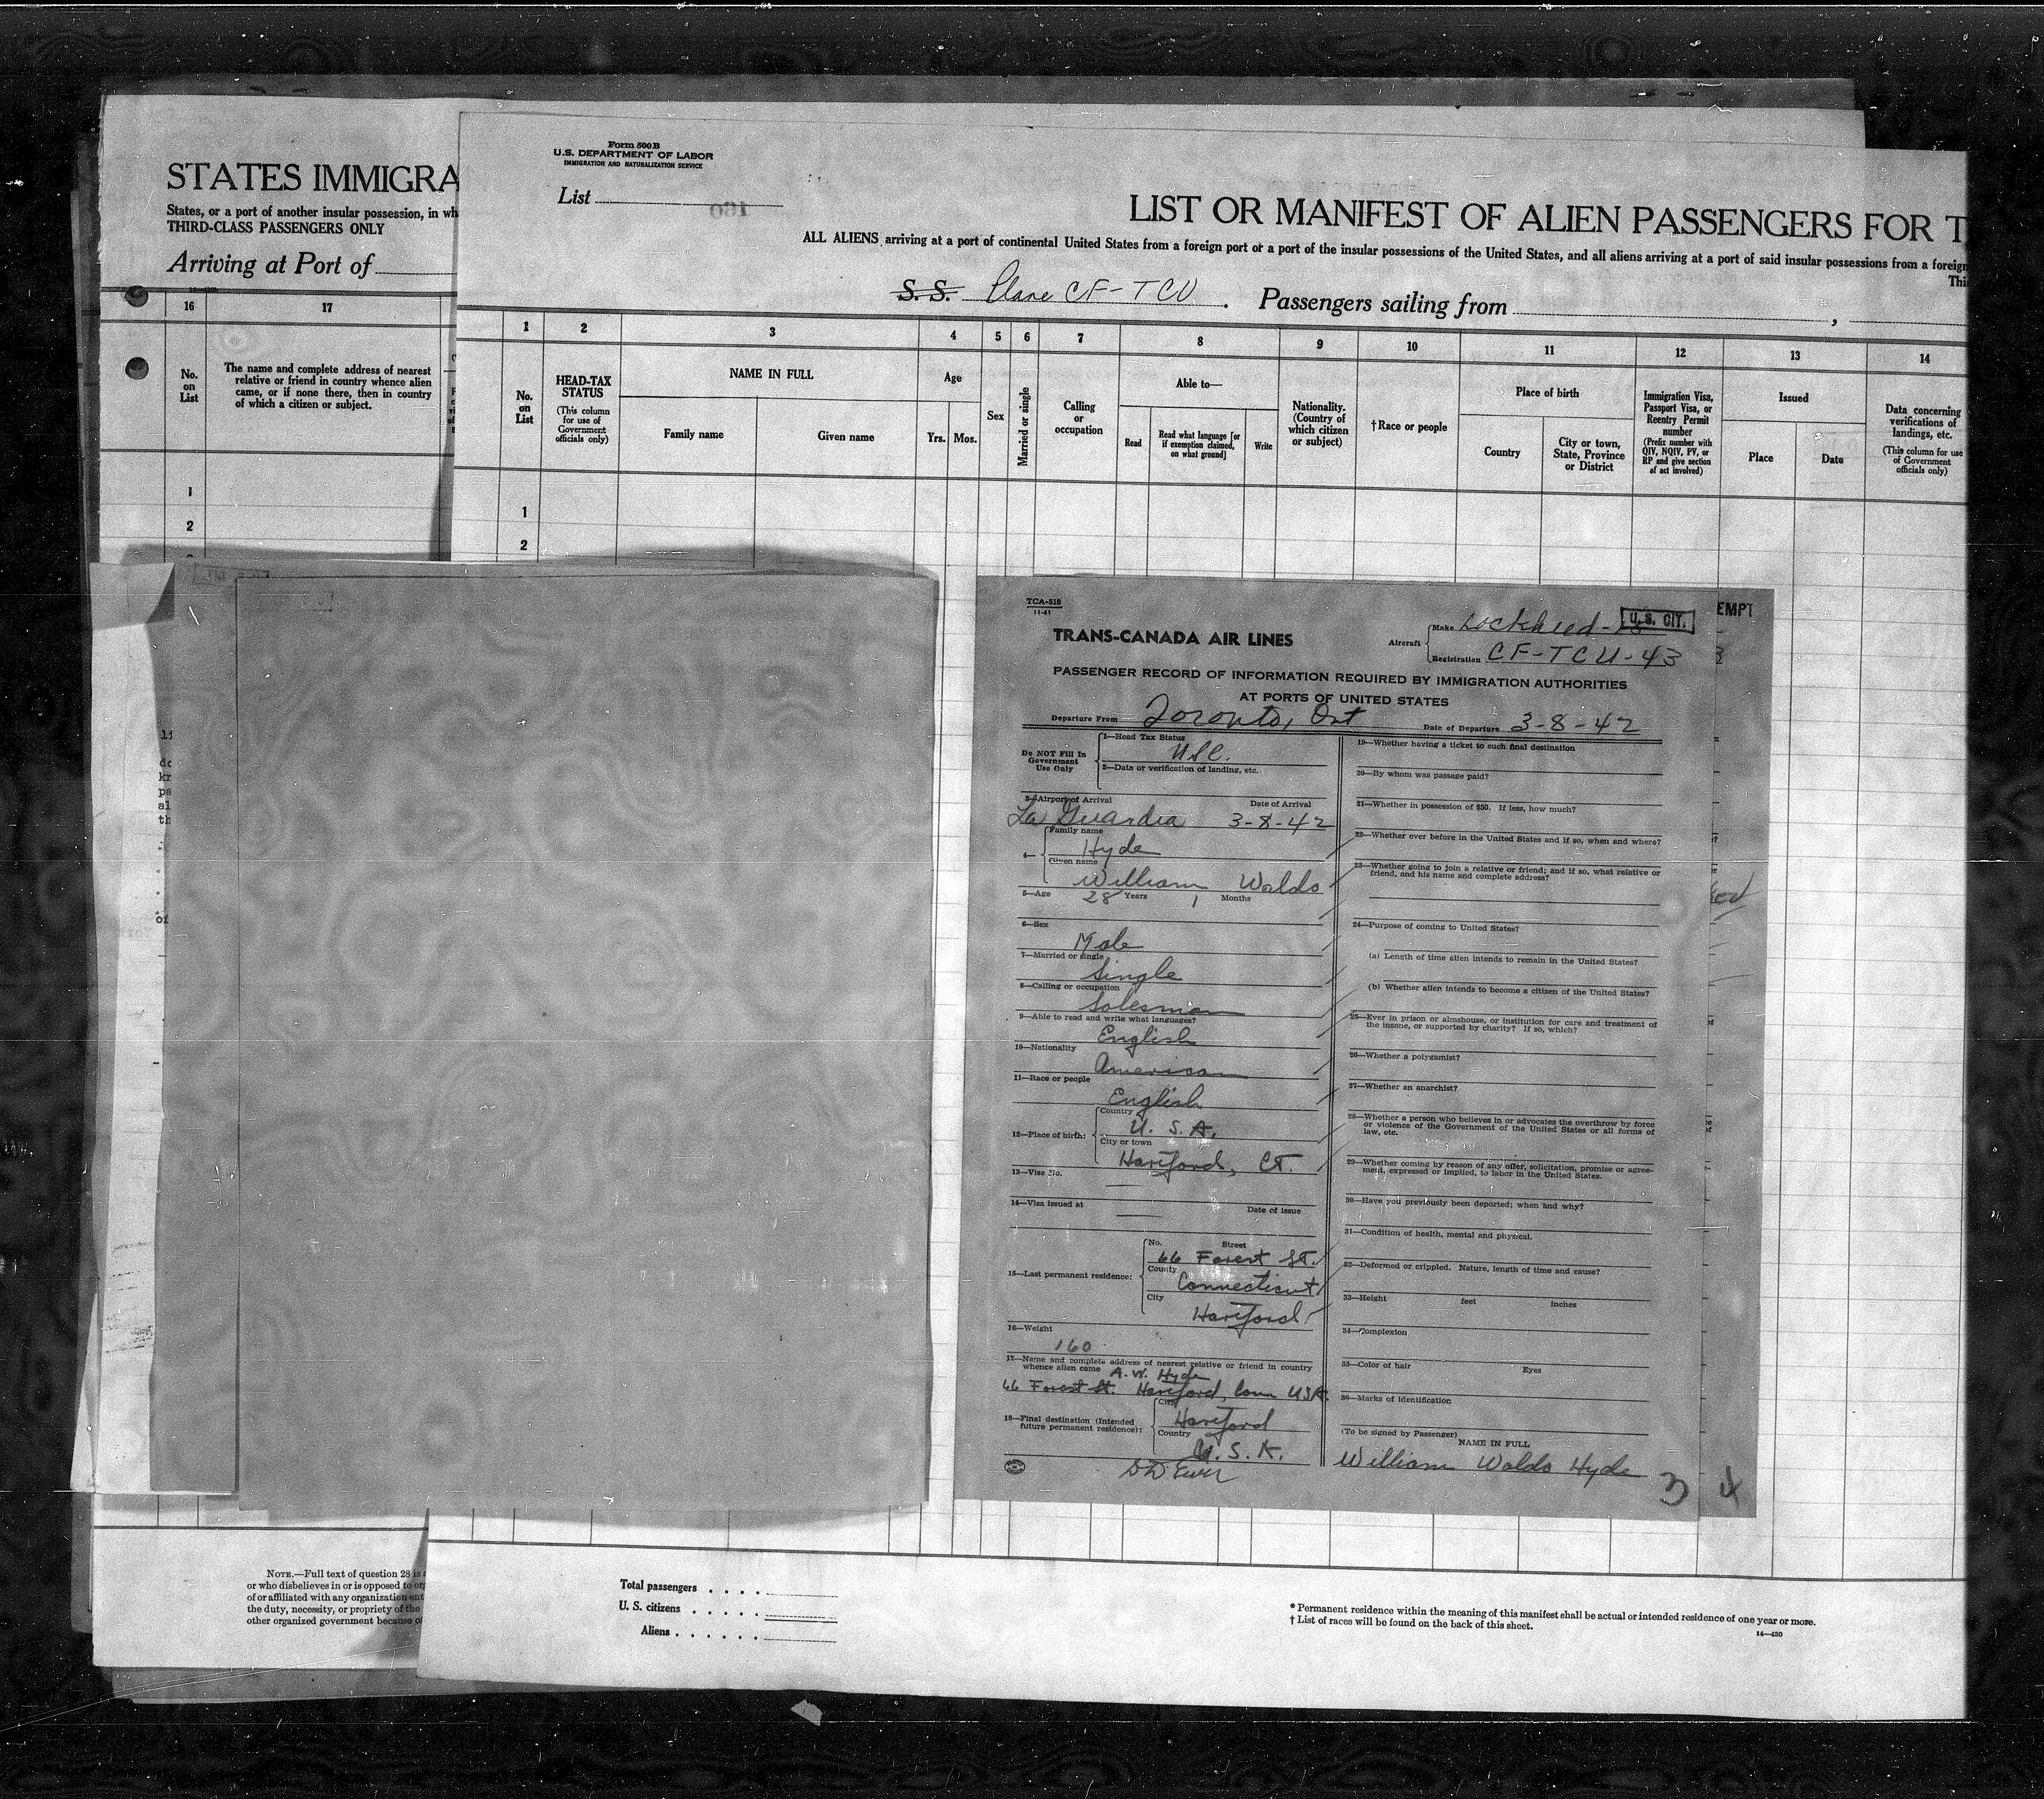 STATES IMMIGRA
States, or a port of another insular possession, in wh
THIRD-CLASS PASSENGERS ONLY
Arriving at Port of
16 17
No. on List
The name and complete address of nearest
relative or friend in country whence alien
came, or if none there, then in country
of which a citizen or subject.
1
2
Form 500 B
U.S. DEPARTMENT OF LABOR
IMMIGRATION AND NATURALIZATION SERVICE
List
160
LIST OR MANIFEST OF ALIEN PASSENGERS FOR T
ALL ALIENS arriving at a port of continental United States from a foreign port or a port of the insular possessions of the United States, and all aliens arriving at a port of said insular possessions from a foreign
Thi
S. S. Plane CF-TCU . Passengers sailing from ,
1 2 3 4 5 6 7 8 9 10 11 12 13 14
No. on List
HEAD-TAX STATUS
(This column for use of Government officials only)
NAME IN FULL
Family name Given name
Age
Yrs. Mos.
Sex
Married or single
Calling or occupation
Able to—
Read
Read what language [or if exemption claimed, on what ground]
Write
Nationality. (Country of which citizen or subject)
† Race or people
Place of birth
Country
City or town, State, Province or District
Immigration Visa, Passport Visa, or Reentry Permit number
(Prefix number with QIV, NQIV, PV, or RP and give section of act involved)
Issued
Place Date
Data concerning verifications of landings, etc.
(This column for use of Government officials only)
1
2
TCA-518
11-41
TRANS-CANADA AIR LINES
Aircraft
Make Lockheed-
U.S. CIT.
EMPT
Registration CF-TCU-43
PASSENGER RECORD OF INFORMATION REQUIRED BY IMMIGRATION AUTHORITIES
AT PORTS OF UNITED STATES
Departure From Toronto, Ont Date of Departure 3-8-42
Do NOT Fill In
Government
Use Only
1—Head Tax Status
USC.
2—Data or verification of landing, etc.
3—Airport of Arrival Date of Arrival
La Guardia 3-8-42
4—
Family name
Hyde
Given name
William Waldo
5—Age 28 Years 1 Months
6—Sex
Male
7—Married or single
Single
8—Calling or occupation
Salesman
9—Able to read and write what languages?
English
10—Nationality
American
11—Race or people
English
12—Place of birth:
Country
U. S. A.
City or town
Hartford, Ct.
13—Visa No.
14—Visa issued at Date of issue
15—Last permanent residence:
No. Street
66 Forest St.
County
Connecticut
City
Hartford
16—Weight
160
17—Name and complete address of nearest relative or friend in country
whence alien came A. W. Hyde
66 Forest St. Hartford, Conn USA.
18—Final destination (Intended
future permanent residence):
City
Hartford
Country
U. S. A.
19—Whether having a ticket to such final destination
20—By whom was passage paid?
21—Whether in possession of $50. If less, how much?
22—Whether ever before in the United States and if so, when and where?
23—Whether going to join a relative or friend; and if so, what relative or
friend, and his name and complete address?
24—Purpose of coming to United States?
(a) Length of time alien intends to remain in the United States?
(b) Whether alien intends to become a citizen of the United States?
25—Ever in prison or almshouse, or institution for care and treatment of
the insane, or supported by charity? If so, which?
26—Whether a polygamist?
27—Whether an anarchist?
28—Whether a person who believes in or advocates the overthrow by force
or violence of the Government of the United States or all forms of
law, etc.
29—Whether coming by reason of any offer, solicitation, promise or agree-
ment, expressed or implied, to labor in the United States.
30—Have you previously been deported; when and why?
31—Condition of health, mental and physical.
32—Deformed or crippled. Nature, length of time and cause?
33—Height feet inches
34—Complexion
35—Color of hair Eyes
36—Marks of identification
(To be signed by Passenger)
NAME IN FULL
William Waldo Hyde
3 4
NOTE.—Full text of question 28 is
or who disbelieves in or is opposed to org
of or affiliated with any organization ent
the duty, necessity, or propriety of the
other organized government because of
Total passengers . . . .
U. S. citizens . . . . .
Aliens . . . . . .
* Permanent residence within the meaning of this manifest shall be actual or intended residence of one year or more.
† List of races will be found on the back of this sheet.
14—430